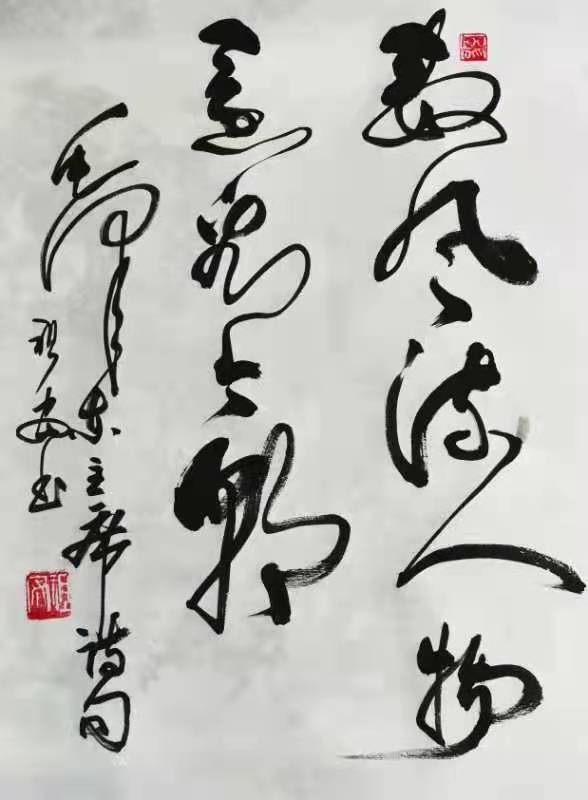 数风流人物
还看今朝
毛泽东主席诗句
书